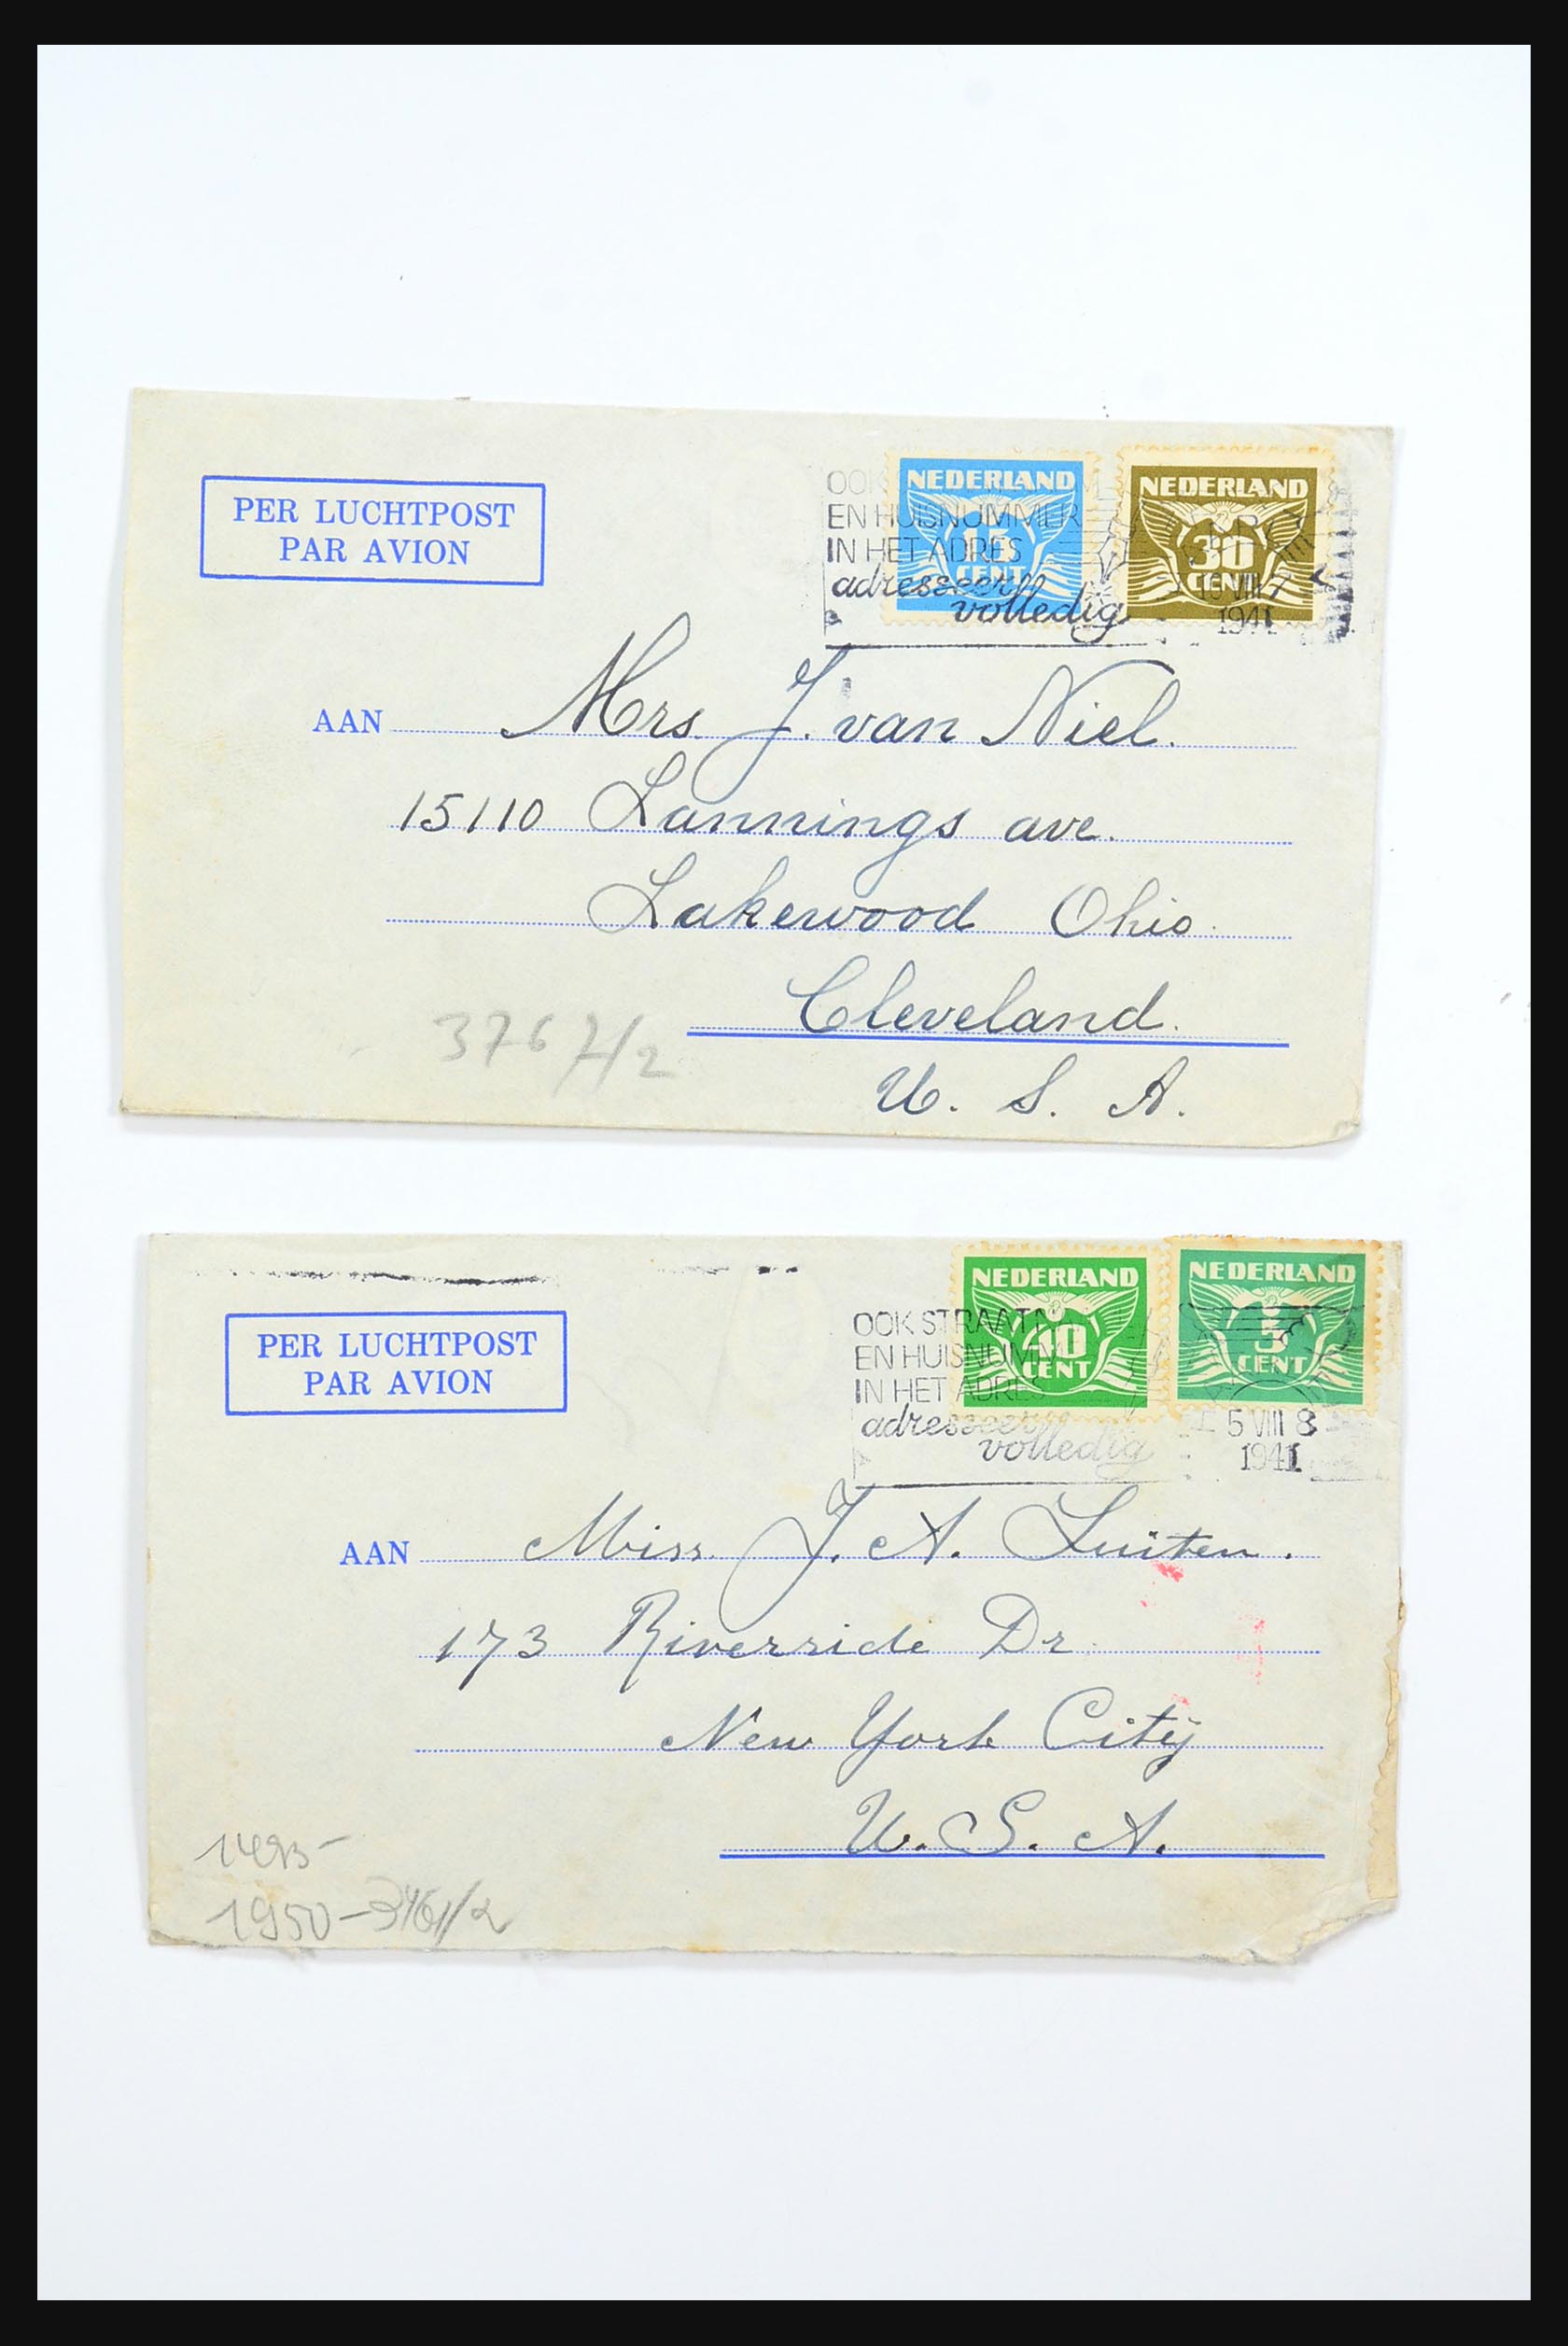 PER LUCHTPOST
PAR AVION
OOK
EN HUISNUMMER
IN HET ADRES
adresseer
volledig
NEDERLAND
15
CENT
NEDERLAND
30
CENT
19 VIII 7
1941
AAN Mrs J. van Niel.
15110 Lannings ave.
Lakewood Ohio.
Cleveland.
U. S. A.
3767/2
PER LUCHTPOST
PAR AVION
OOK STRAATN
EN HUISNUMM
IN HET ADRES
adresseer
volledig
NEDERLAND
40
CENT
NEDERLAND
5
CENT
5 VIII 8
1941
AAN Miss. J. A. Luiten.
173 Riverside Dr.
New York City
U. S. A.
1950-3461/2